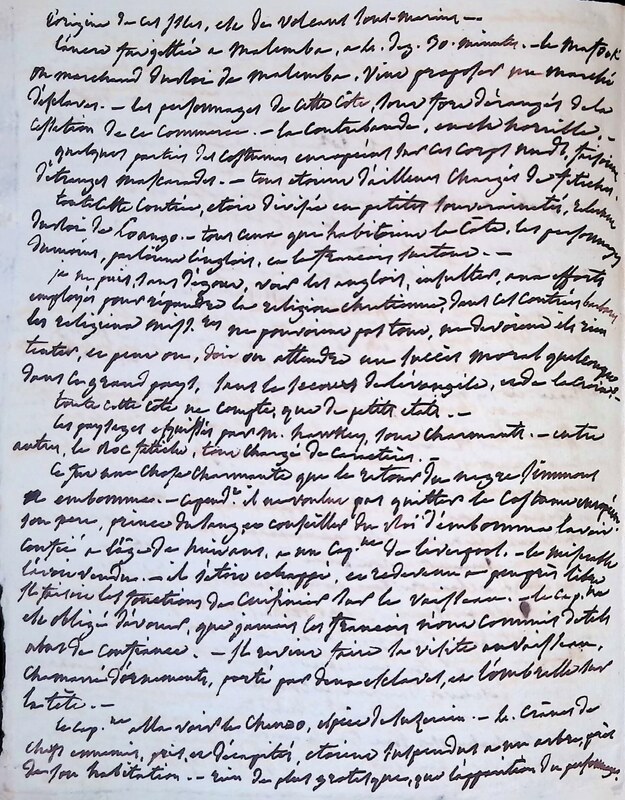 L'origine de ces Isles, est de volcans sous-marins —
L'ancre fut jettée a Malemba, a 4. deg. 30. minutes. — le mafouk
ou marchand du Roi de Malemba, vint proposer un marché
d'Esclaves. — les personnages de cette côte, sont fort dérangés de la
cessation de ce commerce. — la contrebande, en est horrible. —
quelques parties des costumes européens sur ces corps nuds,
d'étranges mascarades. — tous etoient d'ailleurs chargés de fetiches.
toute cette contrée, etoit divisée en petites souverainetés,
du Roi de Loango. — tous ceux qui habitoient la Côte, les personnages
du moins, parloient l'anglois, et le francois surtout. —
je ne puis, sans dégout, voir les anglois, insulter, aux efforts
employés pour répandre la religion chrétienne, dans ces contrées
les religieux miss. res ne pouvoient pas tout, ne devoient ils rien
tenter, et peut on, doit on attendre un succès moral quelconque
dans un grand pays, sans le secours de l'évangile, et de la Croix —
toute cette côte ne compte, que de petits états. —
les paysages esquissés par M. Hawkey, sont charmants. — entre
autres, le Roc fétiche, tout chargé de caractères. —
Ce fut une chose charmante que le retour du negre Simmons
a embomme. — cepend.t il ne voulut pas quitter le costume européen
son pere, prince du sang, et conseiller du Roi d'embomme l'avoit
confié a l'âge de huit ans, a un cap.ne de Liverpool. — le misérable
l'avoit vendu. — il s'étoit echappé, et redevenu a peu près libre
Il faisoit les fonctions de cuisinier sur le vaisseau. — le cap.ne
est obligé d'avouer, que jamais les francois n'ont commis de tels
abus de confiance. — Il revint faire la visite au vaisseau,
chamarré d'ornements, porté par deux esclaves, et l'ombrelle sur
la tête. —
Le cap.ne alla voir le Chenoo, espèce de suzerain. — les crânes de
chefs ennemis, pris, et décapités, etoient suspendus a un arbre, près
de son habitation. — rien de plus grotesque, que l'apparition du personnage.